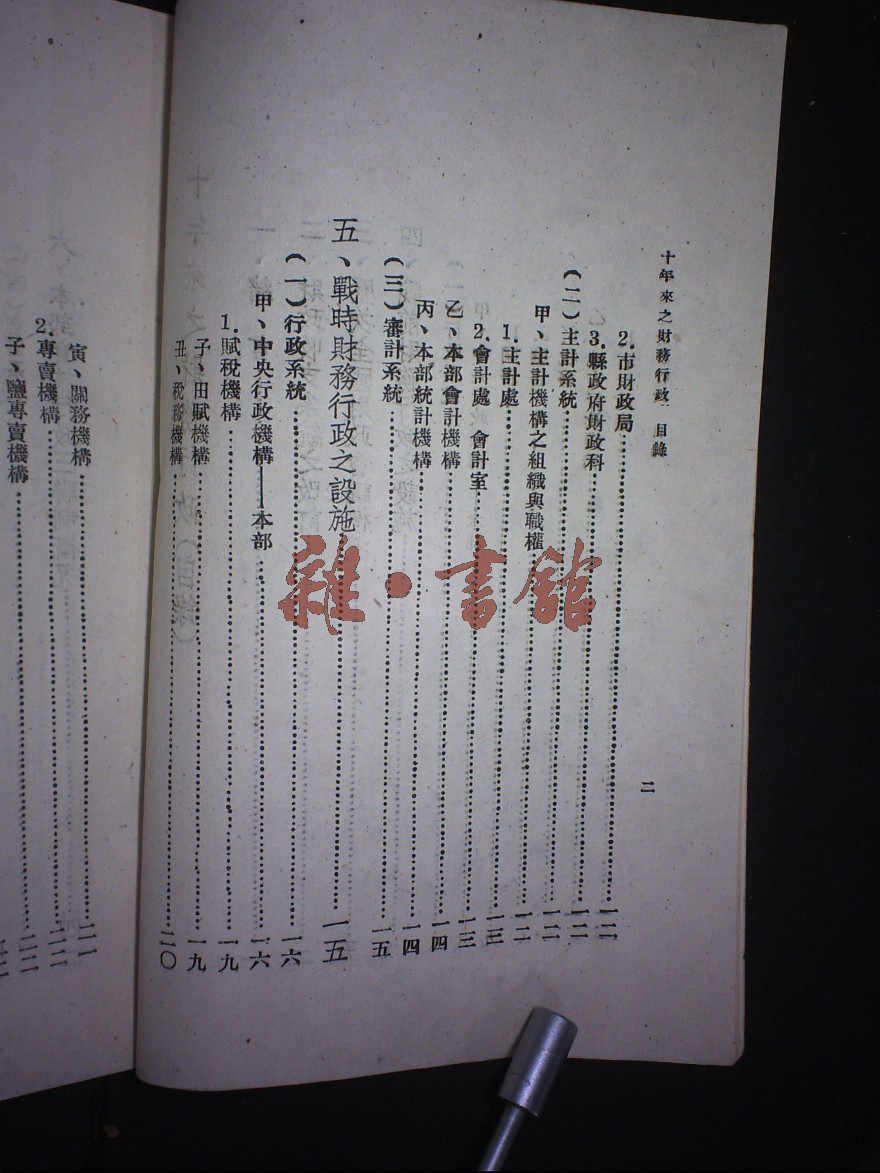 十年來之財務行政 目錄
二
2.市財政局……一二
3.縣政府財政科……一二
(二)主計系統……一二
甲、主計機構之組織與職權……一二
1.主計處……一二
2.會計處 會計室……一三
乙、本部會計機構……一四
丙、本部統計機構……一四
(三)審計系統……一五
五、戰時財務行政之設施……一五
(一)行政系統……一六
甲、中央行政機構——本部……一六
1.賦稅機構……一九
子、田賦機構……一九
丑、稅務機構……二〇
寅、關務機構……二一
2.專賣機構……二二
子、鹽專賣機構……二二
雜·書館